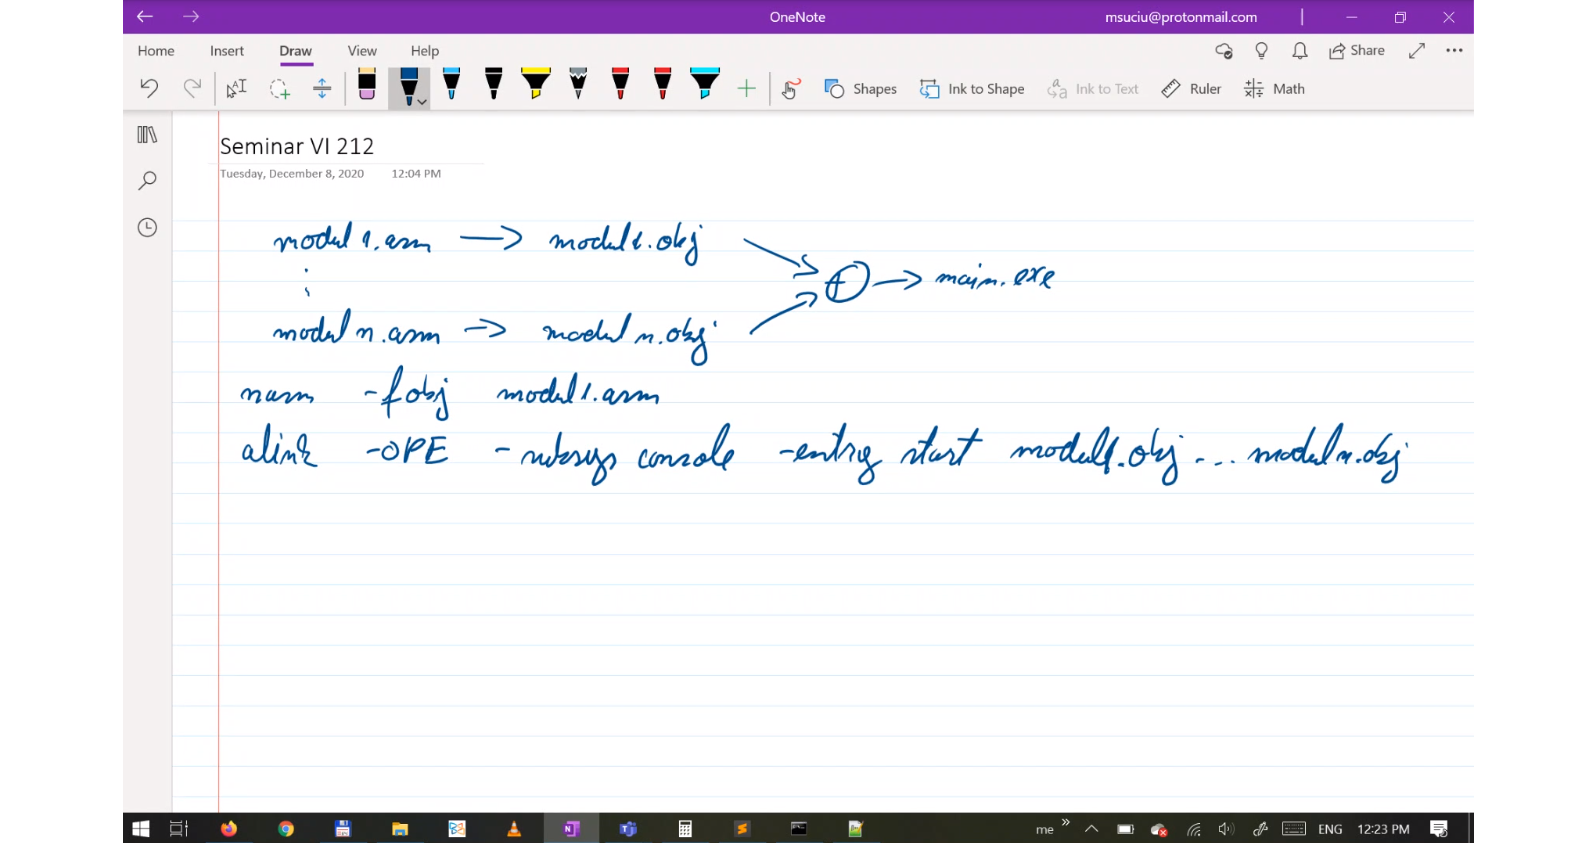 OneNote
msuciu@protonmail.com
Home Insert Draw View Help
Share
Shapes Ink to Shape Ink to Text Ruler Math
Seminar VI 212
Tuesday, December 8, 2020 12:04 PM
modul1.asm → modul1.obj
⊕ → main.exe
modul n.asm → modul n.obj
nasm -fobj modul1.asm
alink -OPE -subsys console -entry start modul1.obj ... modul n.obj
me ENG 12:23 PM